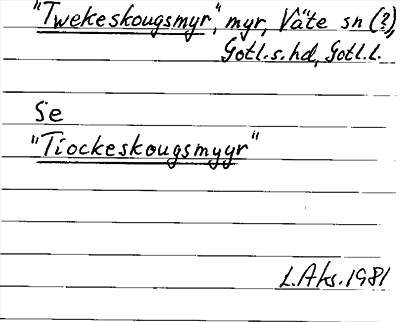 "Twekeskougsmyr", myr, Väte sn (?),
Gotl.s.hd, Gotl.l.
Se
"Tiockeskougsmyyr"
L.Aks. 1981